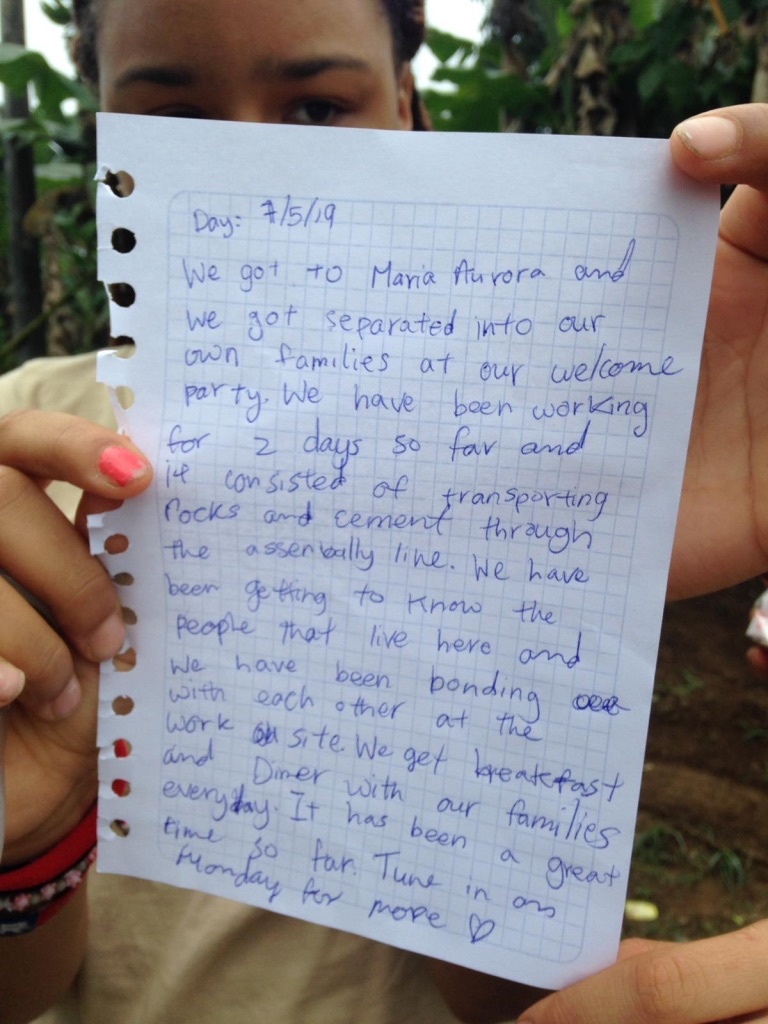 Day: 7/5/19
We got to Maria Aurora and
we got separated into our
own families at our welcome
party. We have been working
for 2 days so far and
it consisted of transporting
rocks and cement through
the assembally line. We have
been getting to know the
people that live here and
we have been bonding
with each other at the
work site. We get breakfast
and Diner with our families
everyday. It has been a great
time so far. Tune in on
Monday for more ♡